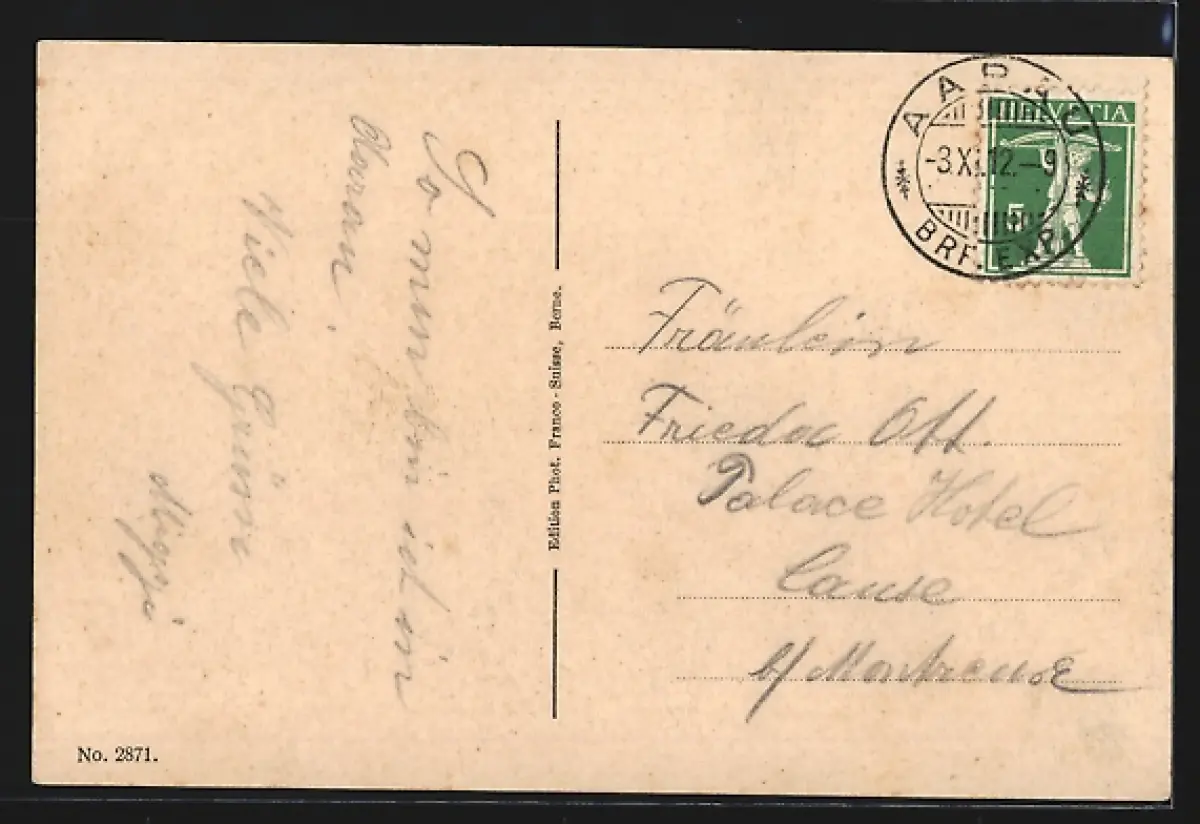 So nun bin ich in
Aarau.
Viele Grüsse
Edition Phot. Franco-Suisse, Berne.
AARAU
-3.XI.12.-9
BRF. EXP.
HELVETIA
5
Fräulein
Frieda Ott.
Palace Hotel
Caux
b/ Montreux
No. 2871.